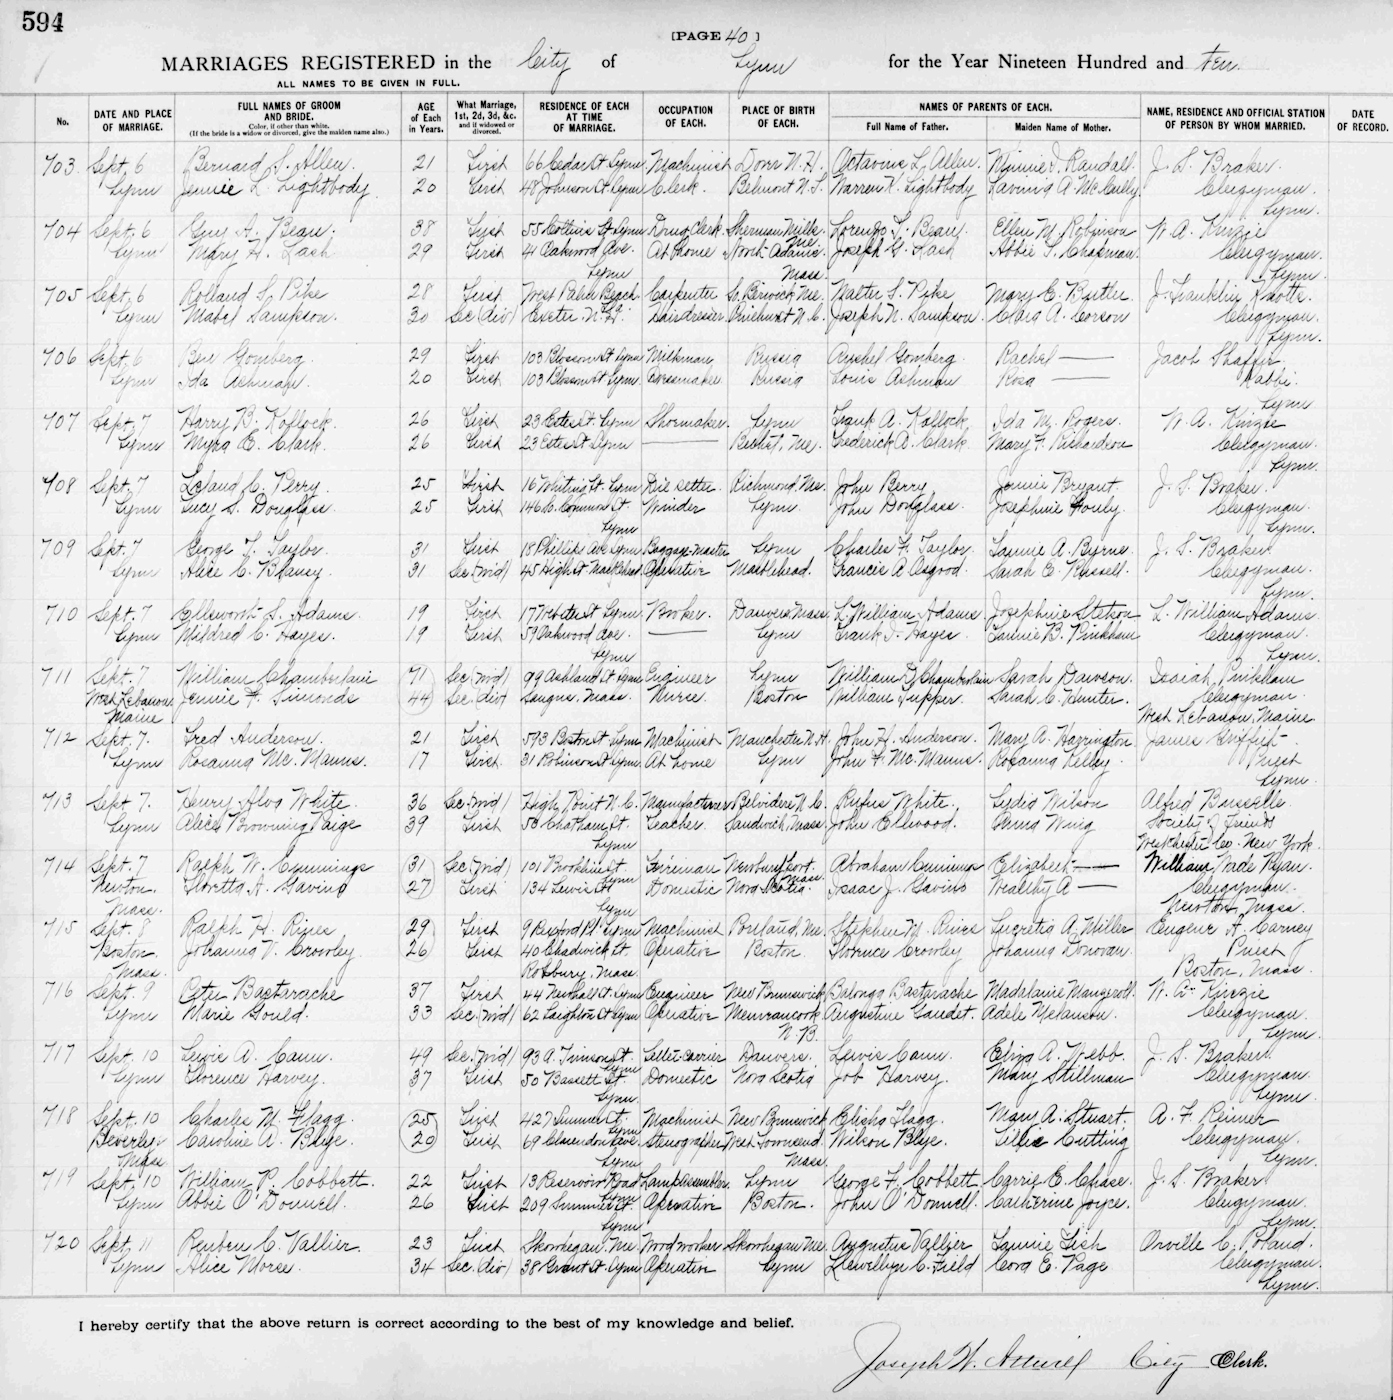 594
[PAGE 40]
MARRIAGES REGISTERED in the City of Lynn for the Year Nineteen Hundred and Ten.
ALL NAMES TO BE GIVEN IN FULL.
No. DATE AND PLACE OF MARRIAGE. FULL NAMES OF GROOM AND BRIDE. Color, if other than white. (If the bride is a widow or divorced, give the maiden name also.) AGE of Each in Years. What Marriage, 1st, 2d, 3d, &c. and if widowed or divorced. RESIDENCE OF EACH AT TIME OF MARRIAGE. OCCUPATION OF EACH. PLACE OF BIRTH OF EACH. NAMES OF PARENTS OF EACH. Full Name of Father. Maiden Name of Mother. NAME, RESIDENCE AND OFFICIAL STATION OF PERSON BY WHOM MARRIED. DATE OF RECORD.
703 Sept. 6 Bernard S. Allen. 21 First 66 Cedar St Lynn Machinist Dover N.H. Octavous L. Allen. Minnie J. Randall. J. S. Braker.
Lynn Jennie L. Lightbody 20 First 48 Johnson St Lynn Clerk. Belmont N.S. Warren K. Lightbody Lavinia A. McCully. Clergyman.
Lynn.
704 Sept. 6 Guy A. Bean. 38 First 55 Collins St Lynn Drug Clerk. Sherman Mills. Me Lorenzo T. Bean. Ellen M. Robinson W. A. Kinzie
Lynn Mary H. Lash 29 First 41 Oakwood Ave. At Home North Adams Joseph G. Lash Abbie S. Chapman. Clergyman.
Lynn Mass. Lynn.
705 Sept. 6 Rolland S. Pike 28 First West Palm Beach Carpenter So. Berwick, Me. Walter S. Pike Mary E. Butler. J. Franklin Knotts.
Lynn Mabel Sampson. 30 Sec (div) Exeter N.H. Hairdresser Pinehurst N.C. Joseph N. Sampson. Clara A. Corson Clergyman.
Lynn.
706 Sept. 6 Ben Gomberg. 29 First 103 Blossom St Lynn Milkman Russia Anshel Gomberg. Rachel — Jacob Shaffer
Lynn Ida Ashman. 20 First 103 Blossom St Lynn. Dressmaker. Russia Louis Ashman Rosa — Rabbi.
Lynn
707 Sept. 7 Harry B. Kollock. 26 First 23 Estes St. Lynn Shoemaker. Lynn Frank A. Kollock. Ida M. Rogers. W. A. Kinzie
Lynn Myra E. Clark. 26 First 23 Estes St Lynn — Me. Frederick A. Clark. Mary F. Richardson Clergyman.
Lynn.
708 Sept. 7 Leland C. Perry. 25 First 16 Whiting St. Lynn Die setter. Richmond. Me. John Berry Jennie Bryant. J. S. Braker.
Lynn Lucy S. Douglass. 25 First 146 So. Common St. Winder Lynn. John Douglass. Josephine Clergyman.
Lynn Lynn.
709 Sept. 7 George F. Taylor. 31 First 18 Phillips Ave Lynn Baggage-Master Lynn Charles F. Taylor. Fannie A. Byrne. J. S. Braker
Lynn Alice C. Blaney. 31 Sec. (wid) 45 High St Marblehead Operative Marblehead. Francis A. Osgood. Sarah E. Russell. Clergyman.
Lynn.
710 Sept. 7 Ellsworth S. Adams. 19 First 17 Webster St Lynn. Broker. Danvers, Mass. L. William Adams Josephine Stetson L. William Adams
Lynn Mildred C. Hayes. 19 First 59 Oakwood Ave. — Lynn Frank T. Hayes Fannie B. Pinkham Clergyman.
Lynn Lynn.
711 Sept. 7 William Chamberlain 71 Sec (wid) 99 Ashland St Lynn Engineer Lynn William D. Chamberlain Sarah Dawson. Isaiah Pinkham
West Lebanon Jennie F. Simonds 44 Sec. (div) Saugus, Mass. Nurse. Boston William Tupper. Sarah C. Hunter. Clergyman.
Maine West Lebanon, Maine.
712 Sept. 7. Fred Anderson. 21 First 593 Boston St. Lynn Machinist Manchester N.H. John H. Anderson. Mary A. Harrington James Griffin
Lynn Rosanna Mc. Manus. 17 First 31 Robinson St Lynn At home Lynn John F. Mc. Manus. Rosanna Kelley. Priest
Lynn.
713 Sept. 7. Henry Alva White. 36 Sec. (wid) High Point N.C. Manufacturer Belvidere N.C. Rufus White. Lydia Wilson Alfred Busselle.
Lynn Alice Browning Paige 39 First 53 Chatham St. Teacher. Sandwich, Mass. John Ellwood. Anna Wing Society of Friends
Lynn Westchester Co. New York.
714 Sept. 7 Ralph W. Cummings 31 Sec. (wid) 101 Brookline St Lynn Fireman Newburyport. Mass Abraham Cummings Elizabeth — William Wade Ryan.
Newton. Floretta A. Gavino 27 First 134 Lewis St Domestic Nova Scotia. Isaac J. Gavino Wealthy A — Clergyman.
Mass. Lynn Newton, Mass.
715 Sept. 8 Ralph H. Rines 29 First Lynn Machinist Portland, Me Stephen W. Rines Lucretia A. Miller Eugene A. Carney
Boston. Johanna V. Crowley. 26 First 40 Chadwick St. Operative Boston. Florence Crowley Johanna Donovan. Priest
Mass. Roxbury, Mass. Boston, Mass.
716 Sept. 9 Peter Bastarache 37 First 44 Newhall St. Lynn Engineer New Brunswick Bastarache Madalaine W. A. Kinzie
Lynn Marie Gould. 33 Sec. (wid) 62 Leighton St Lynn Operative Memramcook Augustine Gaudet. Adele Melanson. Clergyman.
N.B. Lynn.
717 Sept. 10 Lewis A. Cann. 49 Sec. (wid) 93 A. Timson St. Lynn Letter-Carrier Danvers. Lewis Cann. Eliza A. Webb. J. S. Braker.
Lynn Florence Harvey. 37 First 50 Bassett St. Domestic Nova Scotia Job Harvey. Mary Stillman Clergyman.
Lynn. Lynn.
718 Sept. 10 Charles M. Flagg. 25 First 427 Summer St. Lynn Machinist New Brunswick Elisha Flagg. Mary A. Stuart. A. F. Reimer
Beverly. Caroline A. Blye. 20 First 69 Clarendon Ave. Stenographer West Townsend. Wilson Blye. Tillie Cutting Clergyman.
Mass Lynn Mass. Lynn.
719 Sept. 10 William P. Cobbett. 22 First 13 Reservoir Road Lynn Lampassembler. Lynn George F. Cobbett Carrie E. Chase. J. S. Braker
Lynn Abbie O'Donnell. 26 First 209 Summer St. Operative Boston. John O'Donnell. Catherine Joyce. Clergyman.
Lynn. Lynn.
720 Sept. 11 Reuben C. Vallier. 23 First Skowhegan. Me Woodworker Skowhegan Me. Augustus Vallier Fannie Fish Orville C. Poland.
Lynn Alice Morse. 34 Sec. (div) 38 St. Lynn Operative Lynn Llewellyn C. Field Cora E. Page Clergyman.
Lynn.
I hereby certify that the above return is correct according to the best of my knowledge and belief.
Joseph W. Attwill City Clerk.